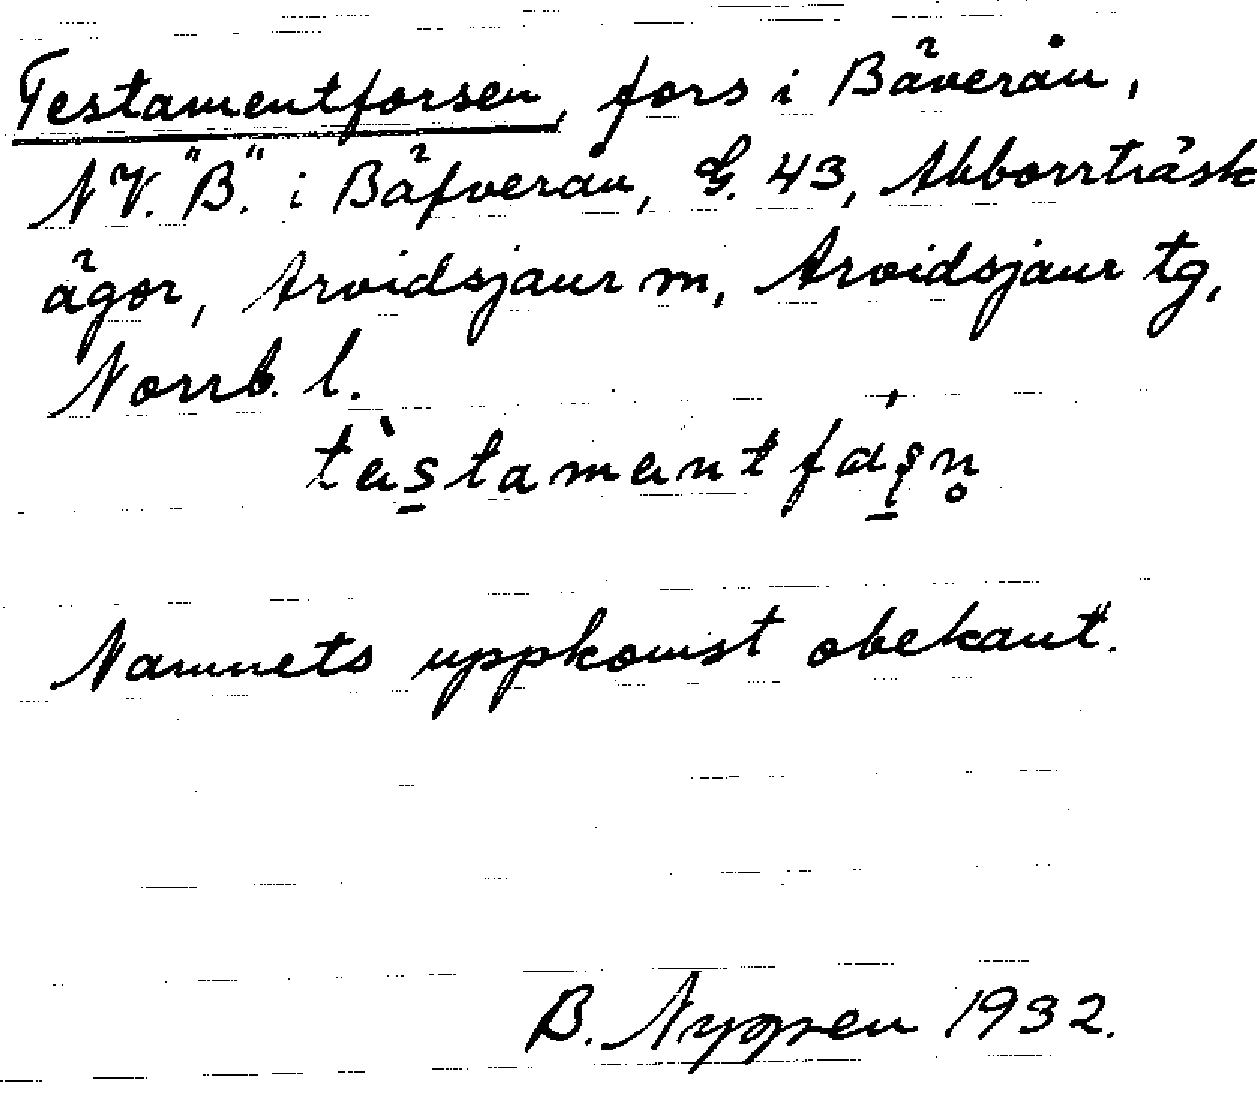 Testamentforsen, fors i Bäverån,
NV. "B." i Bäfverån, G. 43, Abborrträsk
ägor, Arvidsjaur m, Arvidsjaur tg,
Norrb. l.
Namnets uppkomst obekant.
B. Nygren 1932.